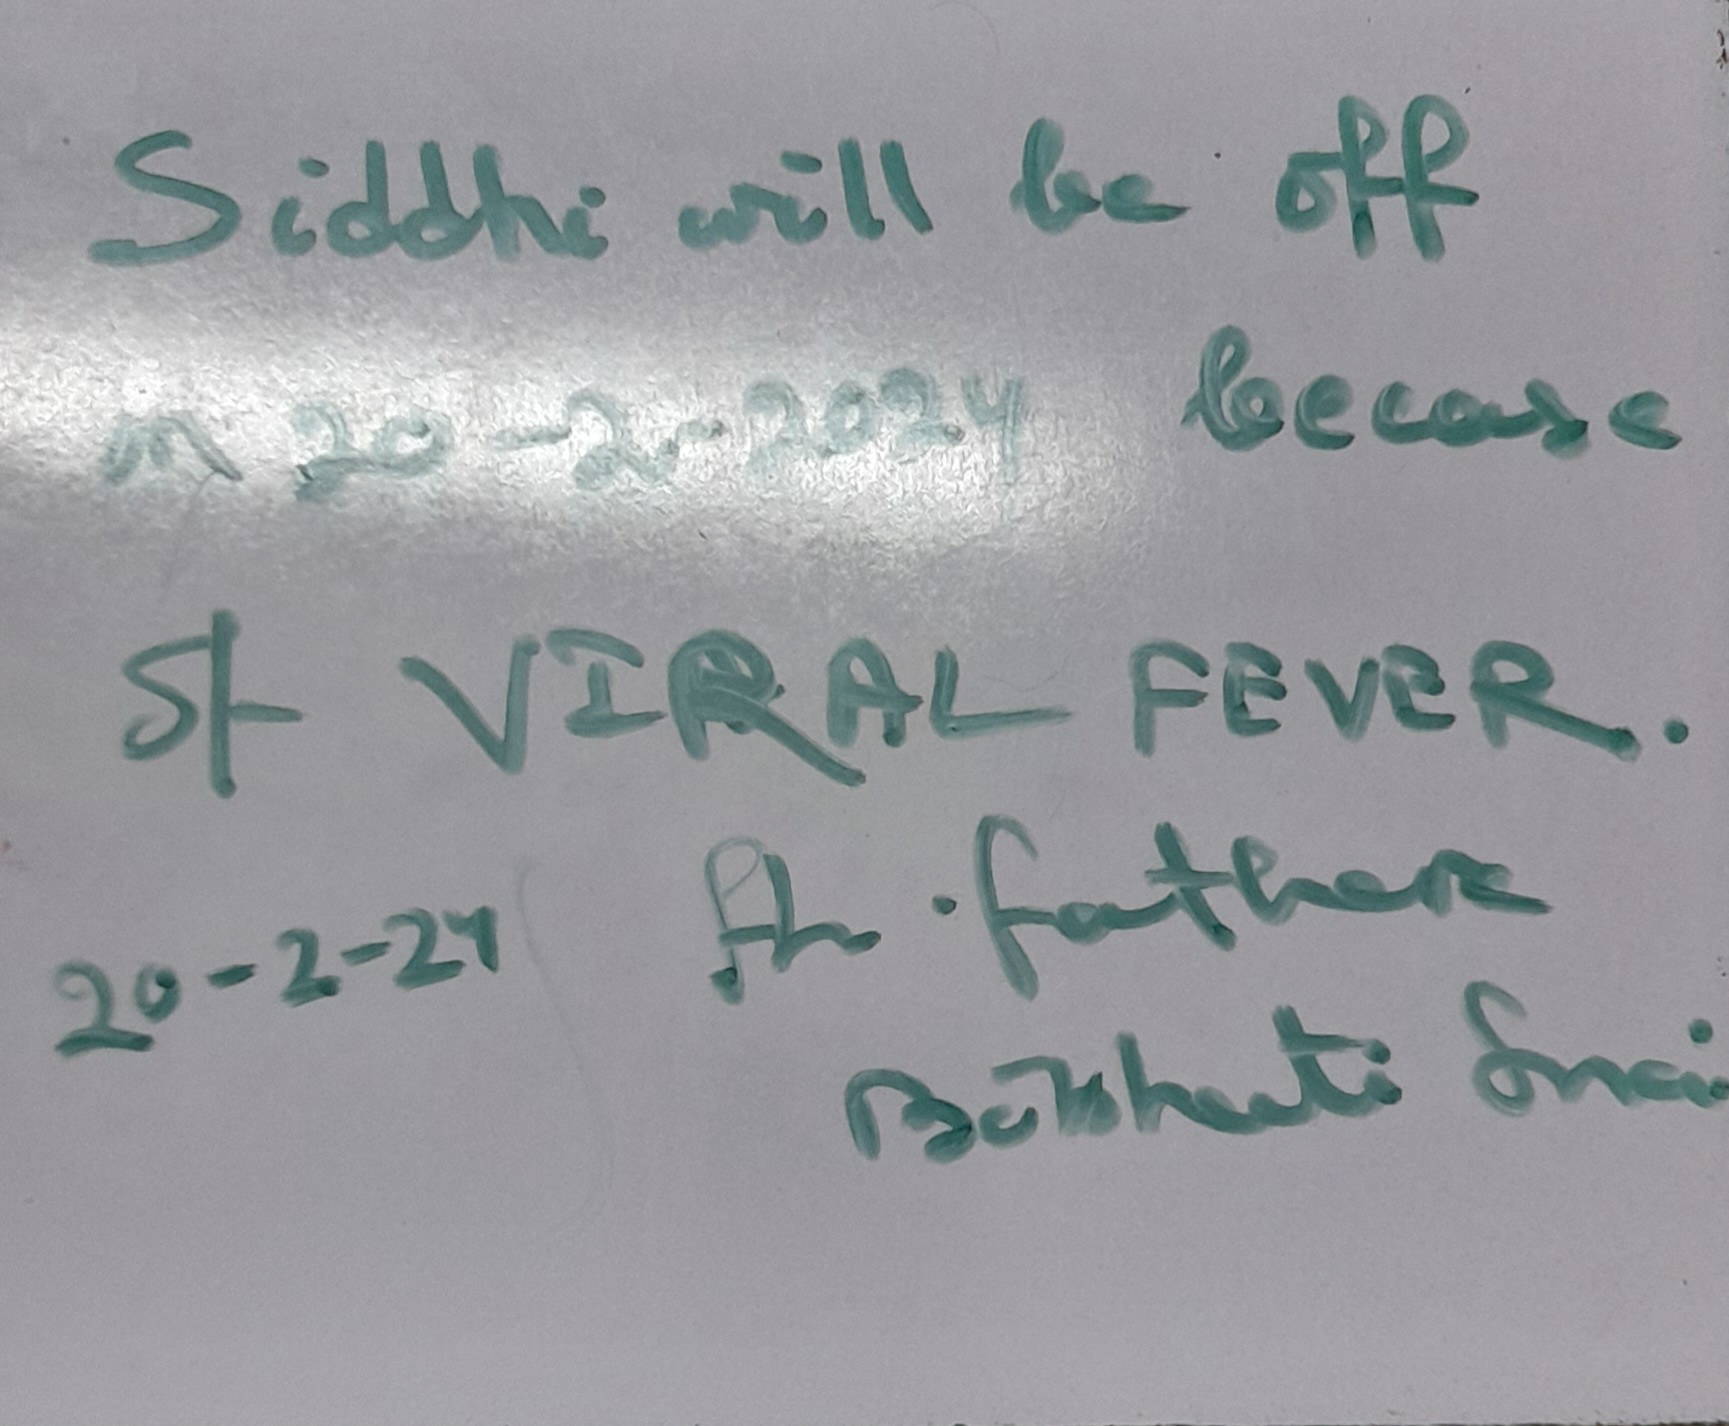 Siddhi will be off
on 20-2-2024 because
of VIRAL FEVER.
20-2-24 father